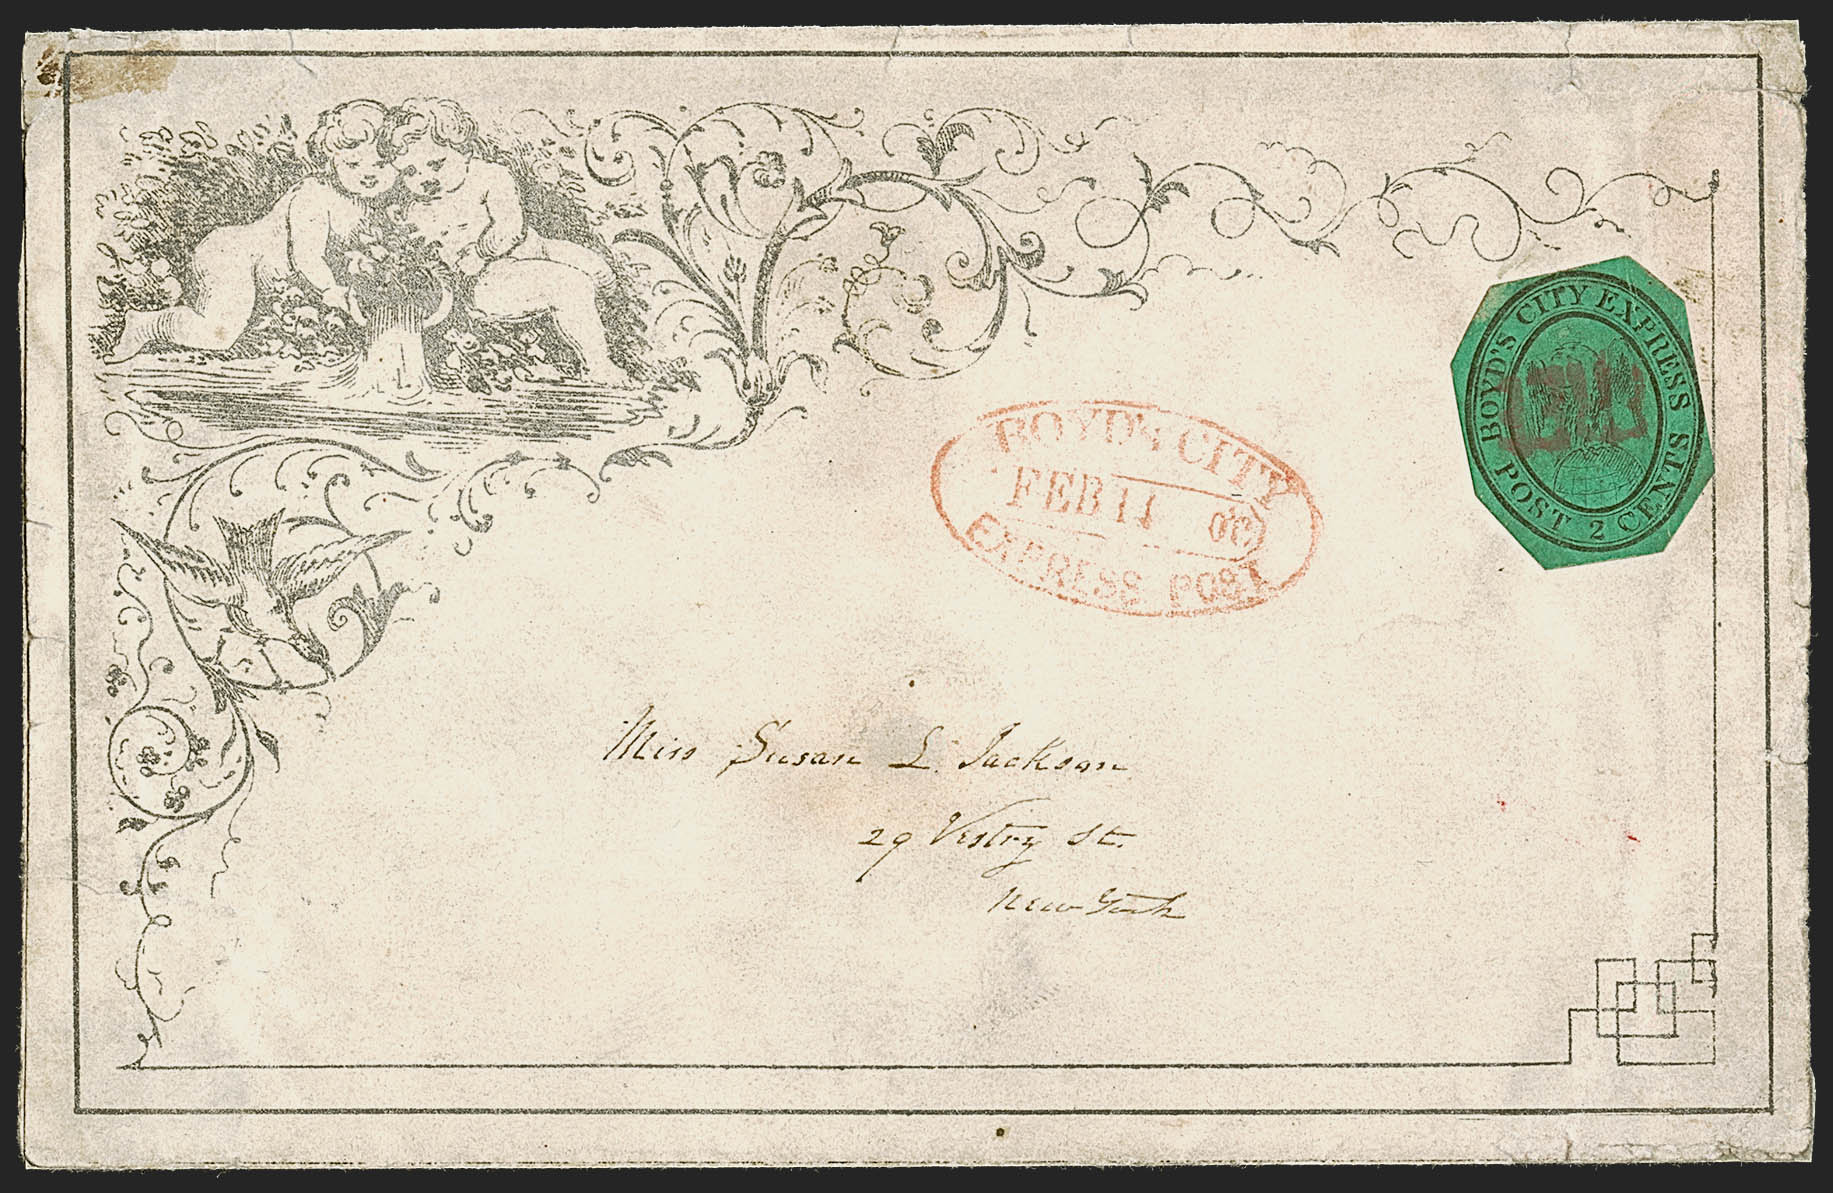 BOYD'S CITY EXPRESS
POST 2 CENTS
BOYD'S CITY
FEB 11
EXPRESS POST
Miss Susan L. Jackson
29 Vestry St.
New York